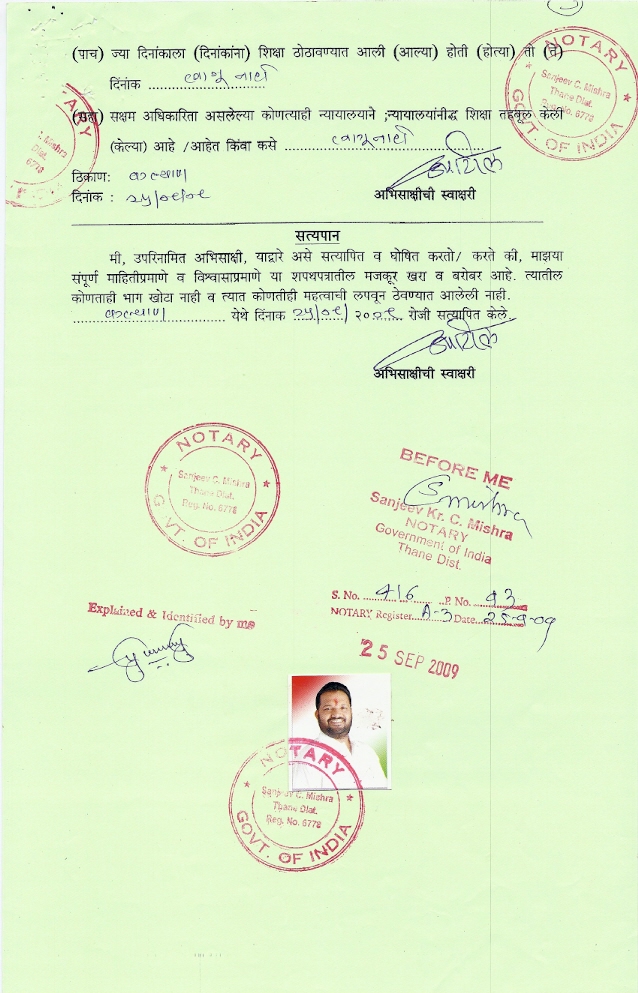 (पाच) ज्या दिनांकाला (दिनांकांना) शिक्षा ठोठावण्यात आली (आल्या) होती (होत्या) तो (ते)
दिनांक लागू नाही
(सहा) सक्षम अधिकारिता असलेल्या कोणत्याही न्यायालयाने ;न्यायालयांनीद्ध शिक्षा तहकूल केली
(केल्या) आहे /आहेत किंवा कसे लागू नाही
ठिकाण: कल्याण
दिनांक : २५/०९/०९
अभिसाक्षीची स्वाक्षरी
सत्यपान
मी, उपरिनामित अभिसाक्षी, याद्वारे असे सत्यापित व घोषित करतो/ करते की, माझया
संपूर्ण माहितीप्रमाणे व विश्वासाप्रमाणे या शपथपत्रातील मजकूर खरा व बरोबर आहे. त्यातील
कोणताही भाग खोटा नाही व त्यात कोणतीही महत्वाची लपवून ठेवण्यात आलेली नाही.
कल्याण येथे दिनांक २५/०९/ २००९ रोजी सत्यापित केले.
अभिसाक्षीची स्वाक्षरी
NOTARY
Sanjeev C. Mishra
Thane Dist.
Reg. No. 6778
GOVT. OF INDIA
NOTARY
Sanjeev C. Mishra
Thane Dist.
Reg. No. 6778
GOVT. OF INDIA
BEFORE ME
Smishra
Sanjeev Kr. C. Mishra
NOTARY
Government of India
Thane Dist.
S. No. 416 P. No. 93
NOTARY Register A-3 Date 25-9-09
Explained & Identified by me
25 SEP 2009
NOTARY
Sanjeev C. Mishra
Thane Dist.
Reg. No. 6778
GOVT. OF INDIA